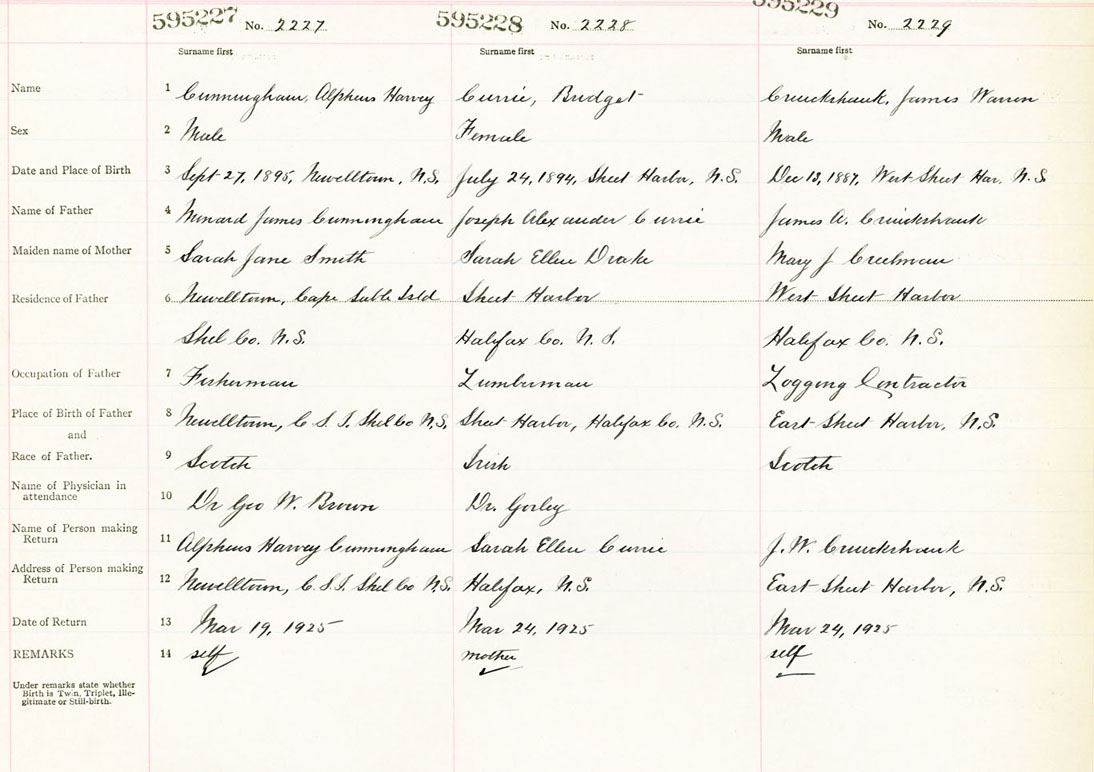 595227 No. 2227 595228 No. 2228 595229 No. 2229
Surname first Surname first Surname first
Name 1 Cunningham, Alpheus Harvey Currie, Bridget Cruickshank, James Warren
Sex 2 Male Female Male
Date and Place of Birth 3 Sept 27, 1895, Newelltown, N.S. July 24, 1894, Sheet Harbor, N.S. Dec 13, 1887, West Sheet Har. N.S
Name of Father 4 Minard James Cunningham Joseph Alexander Currie James A. Cruickshank
Maiden name of Mother 5 Sarah Jane Smith Sarah Ellen Drake Mary J Creelman
Residence of Father 6 Newelltown, Cape Sable Isld Sheet Harbor West Sheet Harbor
Shel Co. N.S. Halifax Co. N.S. Halifax Co. N.S.
Occupation of Father 7 Fisherman Lumberman Logging Contractor
Place of Birth of Father 8 Newelltown, C.S.I. Shel Co N.S. Sheet Harbor, Halifax Co. N.S. East Sheet Harbor, N.S.
and
Race of Father. 9 Scotch Irish Scotch
Name of Physician in
attendance 10 Dr Geo W. Brown Dr. Gorley
Name of Person making
Return 11 Alpheus Harvey Cunningham Sarah Ellen Currie J.W. Cruickshank
Address of Person making
Return 12 Newelltown, C.S.I. Shel Co N.S. Halifax, N.S. East Sheet Harbor, N.S.
Date of Return 13 Mar 19, 1925 Mar 24, 1925 Mar 24, 1925
REMARKS 14 self mother self
Under remarks state whether
Birth is Twin, Triplet, Ille-
gitimate or Still-birth.